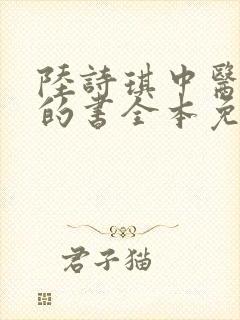 陸詩琪中醫
的書全本免
君子猫